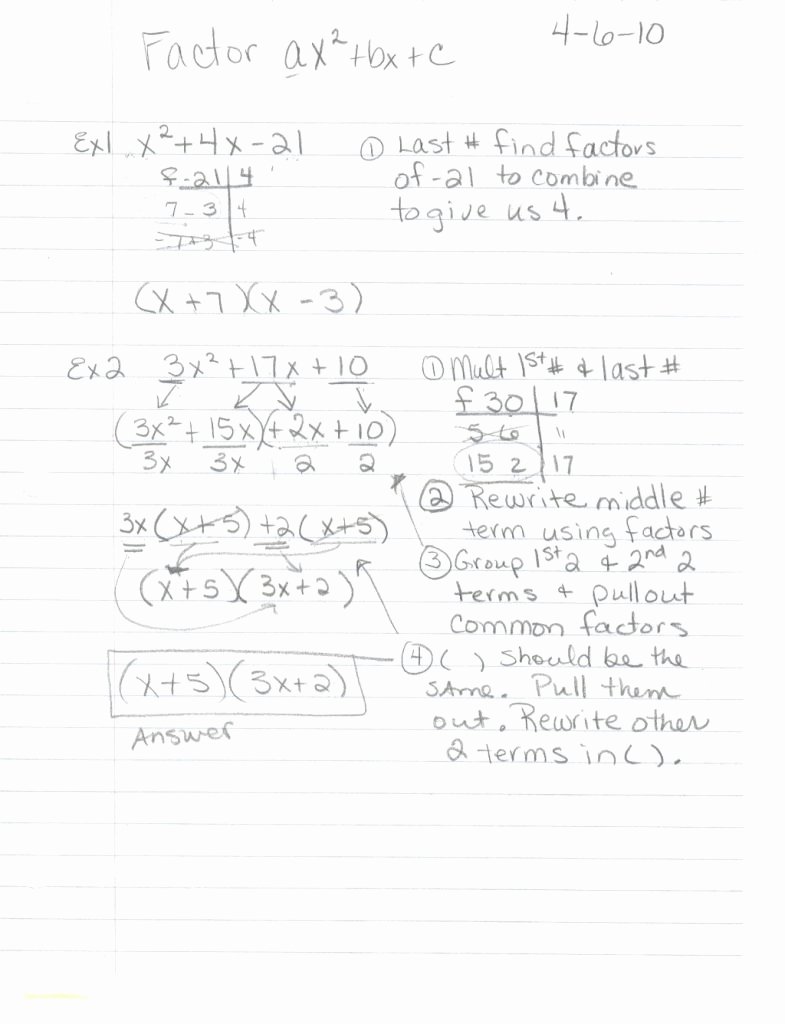 Factor ax²+bx+c
4-6-10
Ex1 x²+4x-21
① Last # find factors
of -21 to combine
to give us 4.
f -21 | 4
7 -3 | 4
-7+3 | -4
(x+7)(x-3)
Ex2 3x²+17x+10
① Mult 1st # & last #
f 30 | 17
5 6 | 11
15 2 | 17
(3x²+15x)(+2x+10)
3x 3x 2 2
② Rewrite middle #
term using factors
3x(x+5)+2(x+5)
③ Group 1st 2 & 2nd 2
terms & pull out
common factors
(x+5)(3x+2)
④ ( ) should be the
same. Pull them
out. Rewrite other
2 terms in ( ).
(x+5)(3x+2)
Answer